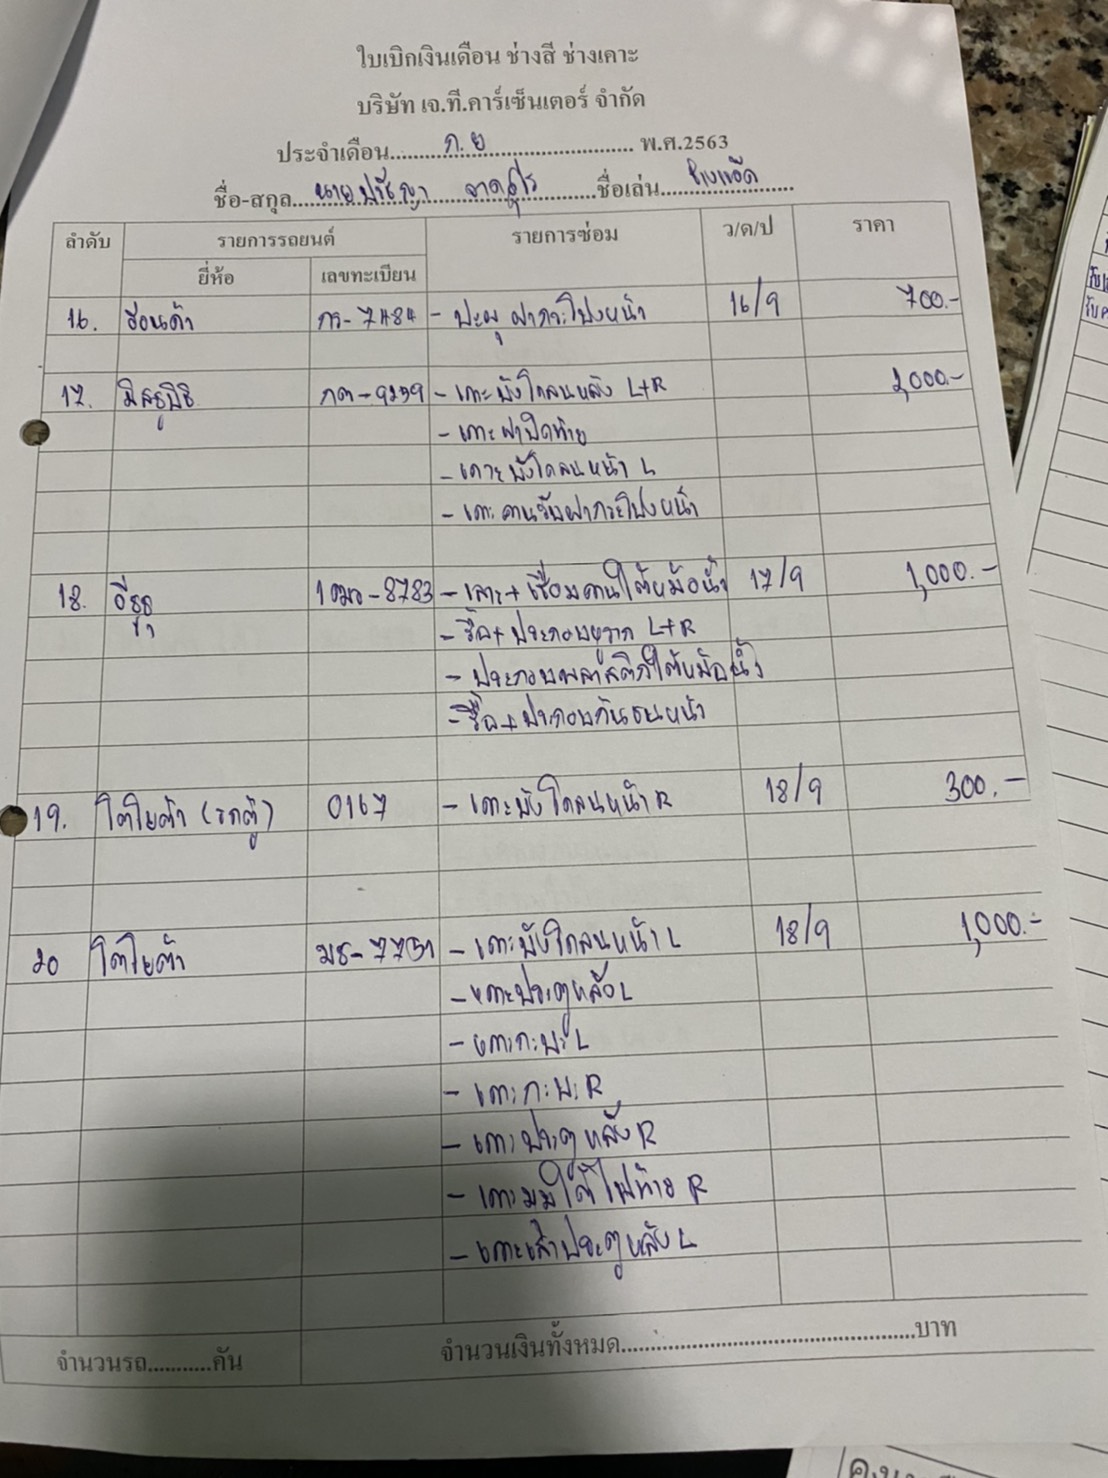 ใบเบิกเงินเดือน ช่างสี ช่างเคาะ
บริษัท เจ.ที.คาร์เซ็นเตอร์ จำกัด
ประจำเดือน......ก.ย...... พ.ศ.2563
ชื่อ-สกุล......นาย ปรัชญา......ชื่อเล่น......
ลำดับ รายการรถยนต์ รายการซ่อม ว/ด/ป ราคา
ยี่ห้อ เลขทะเบียน
16. ฮอนด้า กว-7484 - ปะผุ ฝากระโปงหน้า 16/9 700.-
17. มิตซูบิชิ กต-9259 - เคาะบังโคลนหลัง L+R 2,000.-
- เคาะฝาปิดท้าย
- เคาะบังโคลนหน้า L
- เคาะคานรับฝากระโปงหน้า
18. อีซูซุ 8783 - เคาะ+เชื่อมคานใต้หม้อน้ำ 17/9 1,000.-
- รื้อ+ประกอบหูลาก L+R
- ประกอบพลาสติกใต้หม้อน้ำ
- รื้อ+ประกอบกันชนหน้า
19. โตโยต้า (รถตู้) 0167 - เคาะบังโคลนหน้า R 18/9 300.-
20 โตโยต้า มธ-7751 - เคาะบังโคลนหน้า L 18/9 1,000.-
- เคาะประตูหลัง L
- เคาะกะบะ L
- เคาะกะบะ R
- เคาะประตูหลัง R
- เคาะมุมใต้ไฟท้าย R
- เคาะเสาประตูหลัง L
จำนวนรถ...........คัน จำนวนเงินทั้งหมด..................................................บาท